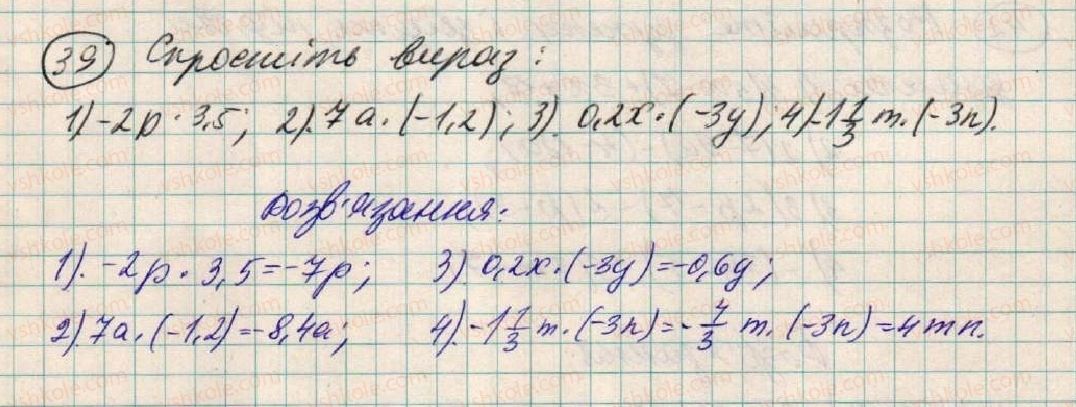 39 Спростіть вираз:
1) -2p · 3,5; 2). 7a · (-1,2); 3). 0,2x · (-3y); 4) -1 1/3 m · (-3n).
Розв'язання:
1). -2p · 3,5 = -7p; 3) 0,2x · (-3y) = -0,6y;
2) 7a · (-1,2) = -8,4a; 4). -1 1/3 m · (-3n) = -4/3 m · (-3n) = 4mn.